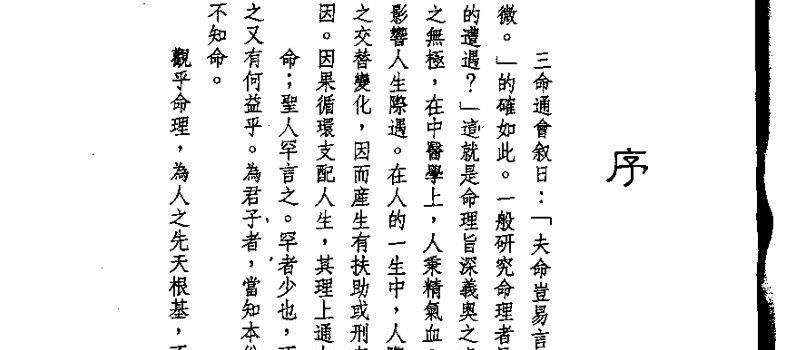 序
三命通會叙日：「夫命豈易言
微。」的確如此。一般研究命理者
的遭遇？」這就是命理旨深義奧之
之無極，在中醫學上，人秉精氣血
影響人生際遇。在人的一生中，人際
之交替變化，因而產生有扶助或刑
因。因果循環支配人生，其理上通
命；聖人罕言之。罕者少也，
之又有何益乎。為君子者，當知本
不知命。
觀乎命理，為人之先天根基，